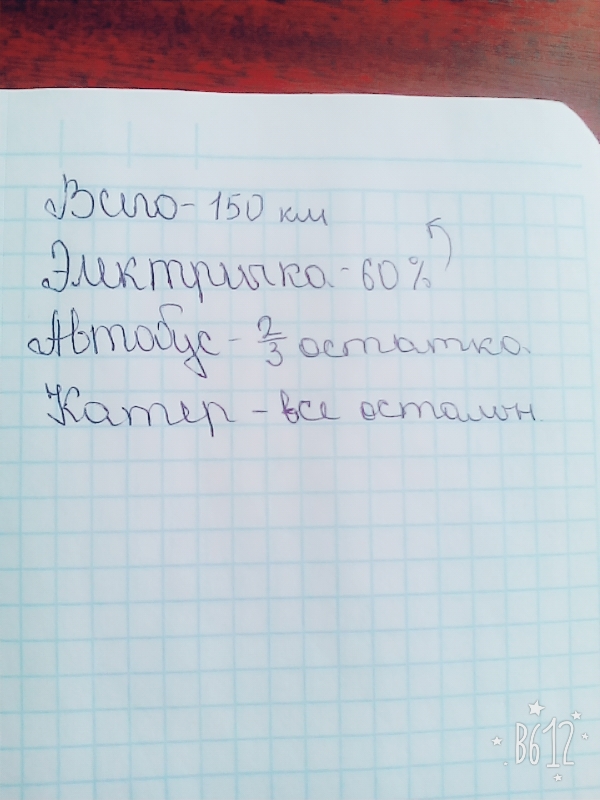 Всего - 150 км
Электричка - 60%
Автобус - 2/3 остатка
Катер - все остальн.
B612